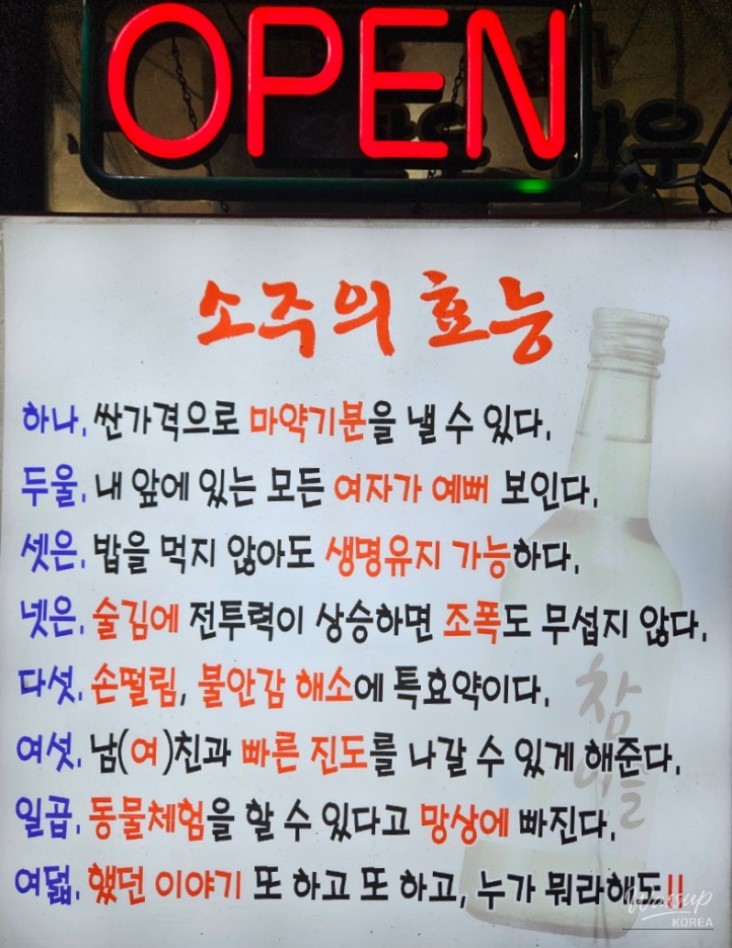 OPEN
우
소주의 효능
하나. 싼가격으로 마약기분을 낼 수 있다.
두울. 내 앞에 있는 모든 여자가 예뻐 보인다.
셋은. 밥을 먹지 않아도 생명유지 가능하다.
넷은. 술김에 전투력이 상승하면 조폭도 무섭지 않다.
다섯. 손떨림, 불안감 해소에 특효약이다.
여섯. 남(여)친과 빠른 진도를 나갈 수 있게 해준다.
일곱. 동물체험을 할 수 있다고 망상에 빠진다.
여덟. 했던 이야기 또 하고 또 하고, 누가 뭐라해도!!
참이슬
Wassup
KOREA